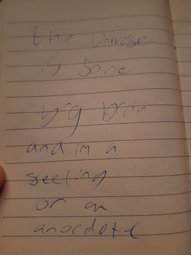 the universe
is some
big brain
and im a
seeling
or an
anordote